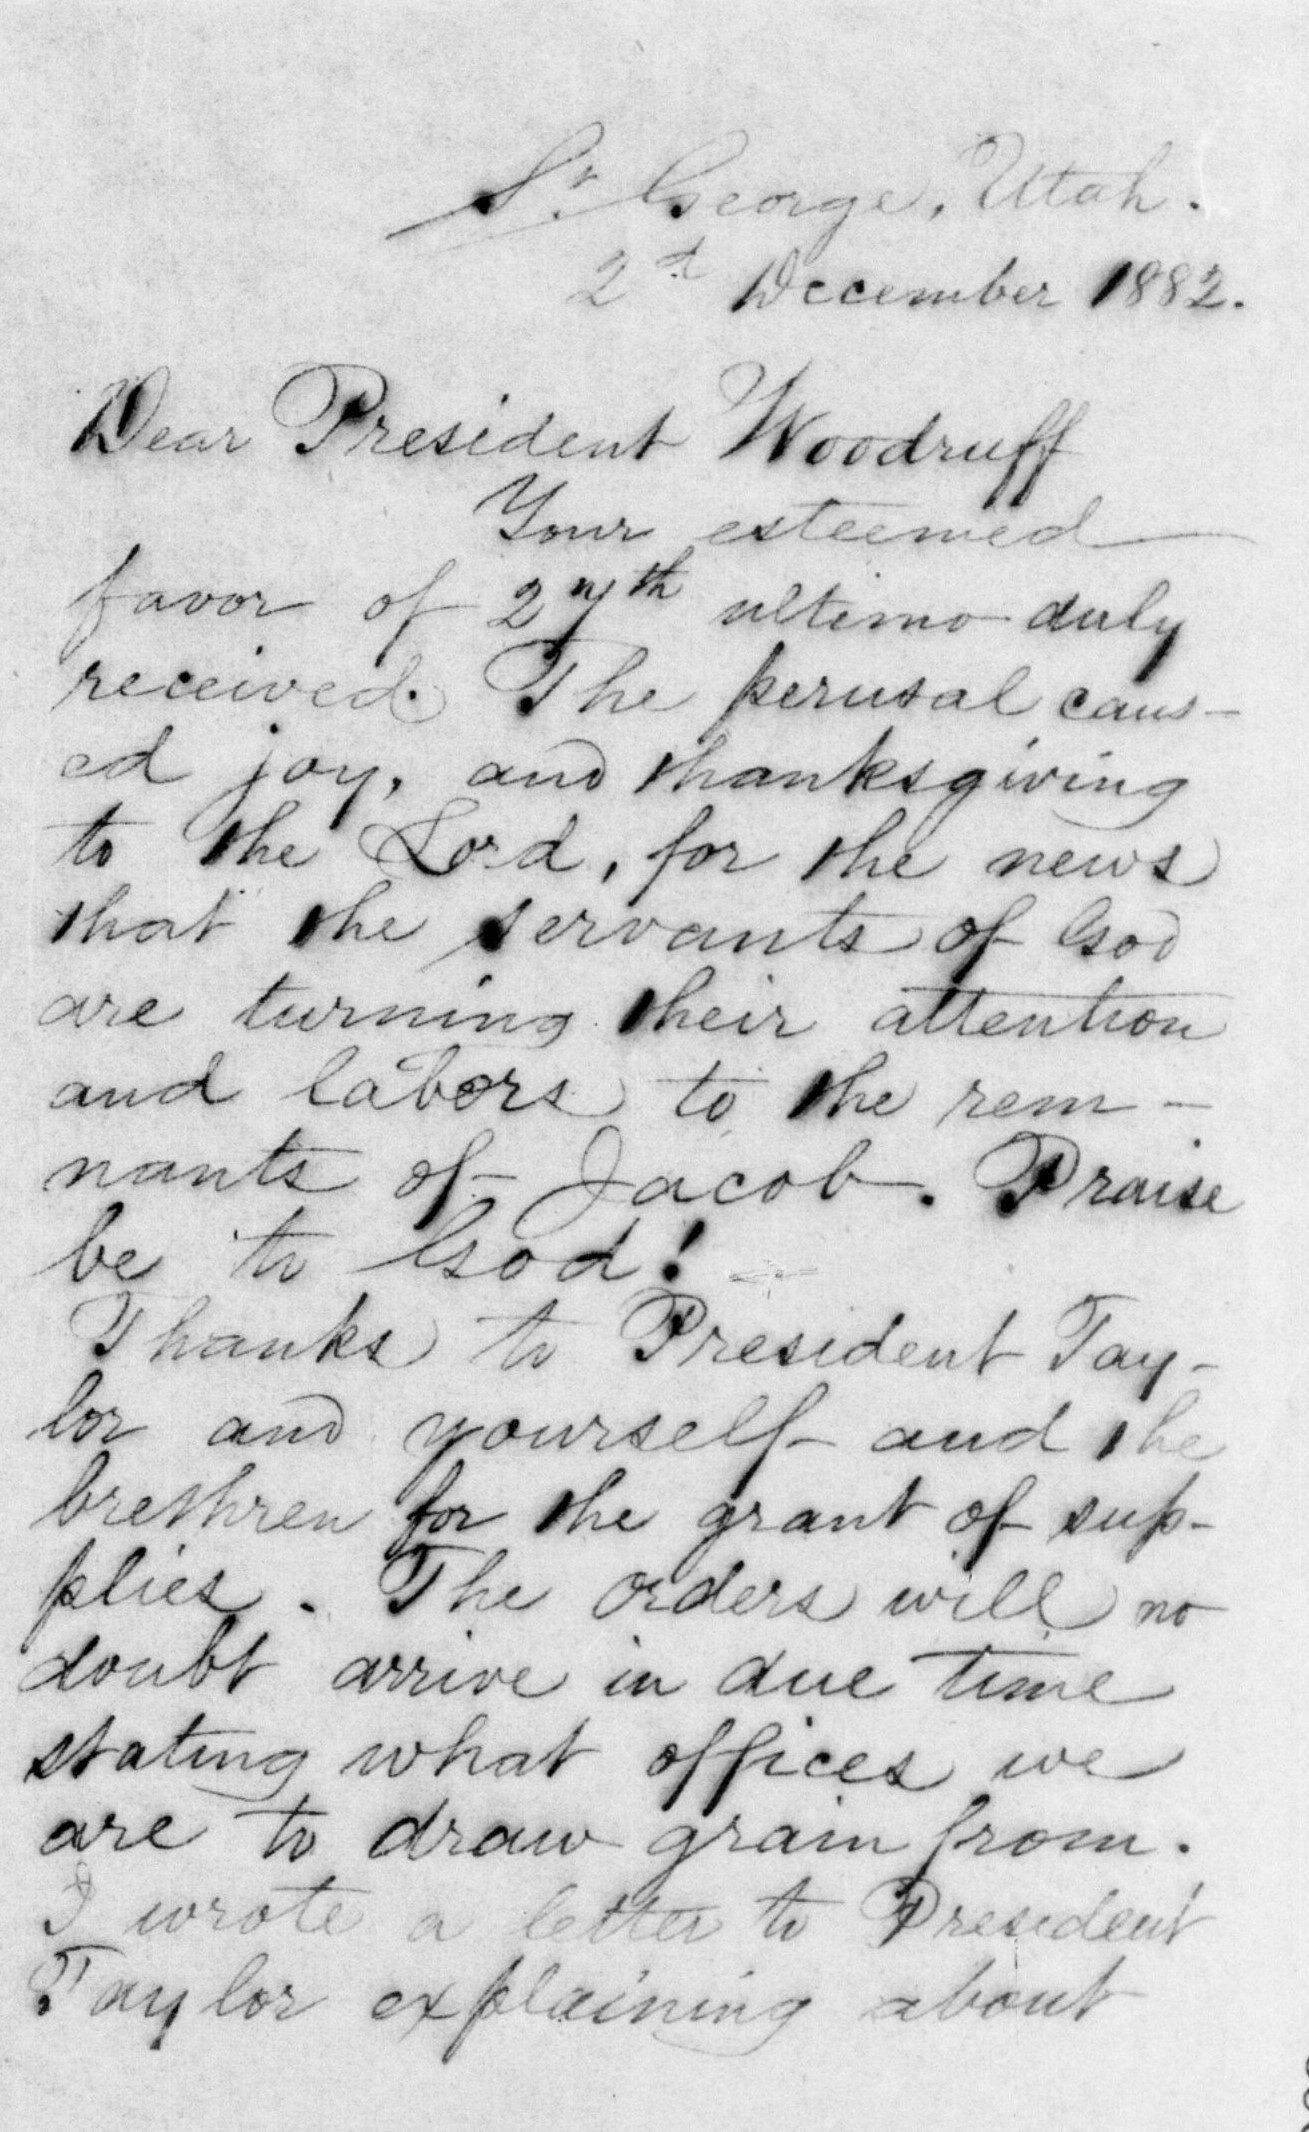 St. George, Utah.
2d December 1882.
Dear President Woodruff
Your esteemed
favor of 27th ultimo duly
received. The perusal caus-
ed joy, and thanksgiving
to the Lord, for the news
that the servants of God
are turning their attention
and labors to the rem-
nants of Jacob. Praise
be to God!
Thanks to President Tay-
lor and yourself and the
brethren for the grant of sup-
plies. The orders will no
doubt arrive in due time
stating what offices we
are to draw grain from.
I wrote a letter to President
Taylor explaining about